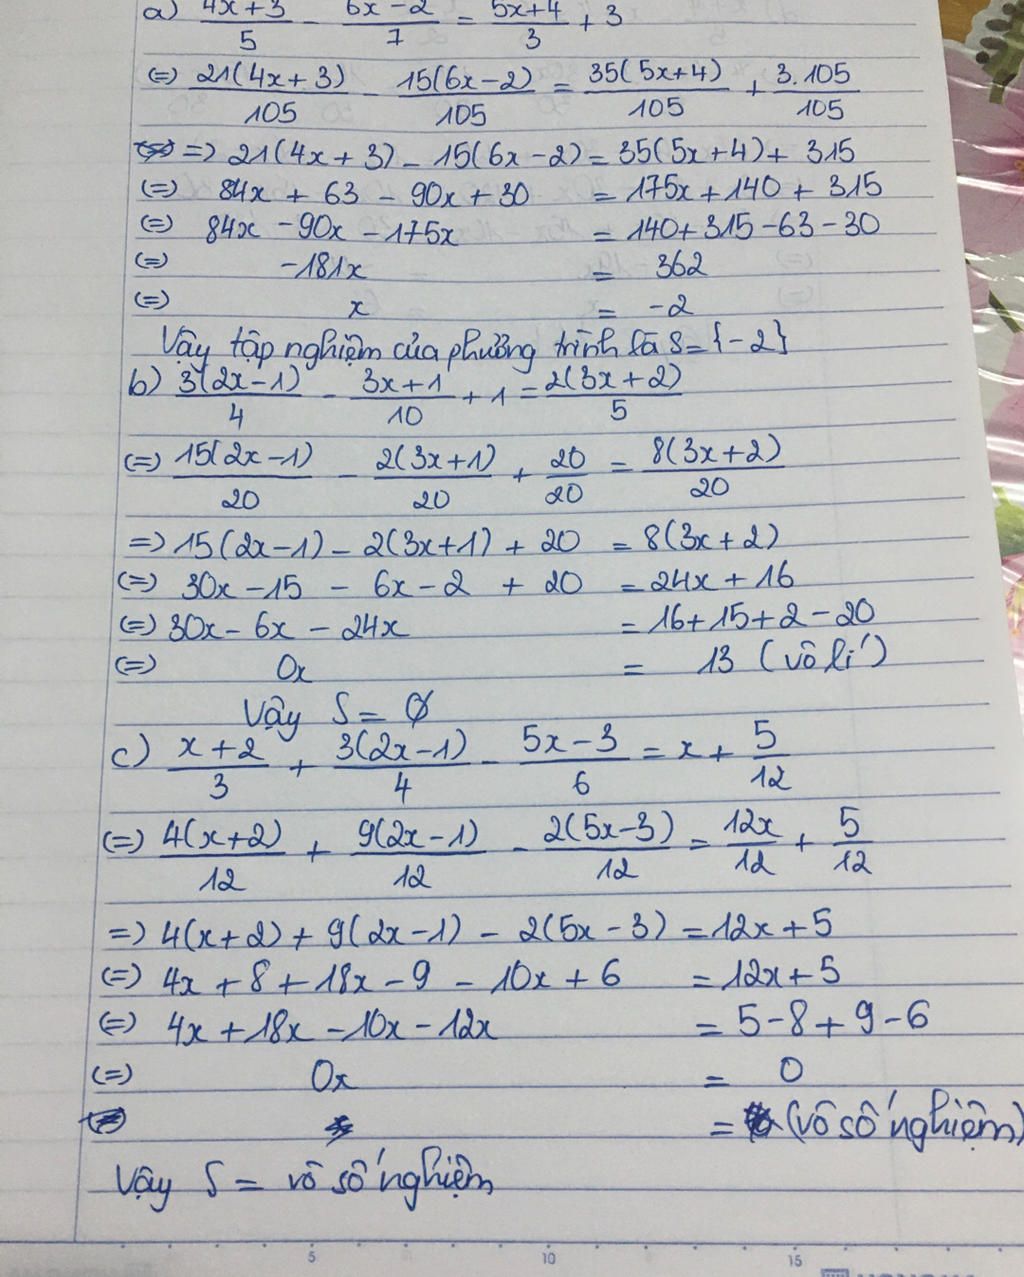 a) (4x+3)/5 - (6x-2)/7 = (5x+4)/3 + 3
(=) 21(4x+3)/105 - 15(6x-2)/105 = 35(5x+4)/105 + 3.105/105
=) 21(4x+3) - 15(6x-2) = 35(5x+4) + 315
(=) 84x + 63 - 90x + 30 = 175x + 140 + 315
(=) 84x - 90x - 175x = 140 + 315 - 63 - 30
(=) -181x = 362
(=) x = -2
Vậy tập nghiệm của phương trình là S = {-2}
b) 3(2x-1)/4 - (3x+1)/10 + 1 = 2(3x+2)/5
(=) 15(2x-1)/20 - 2(3x+1)/20 + 20/20 = 8(3x+2)/20
=) 15(2x-1) - 2(3x+1) + 20 = 8(3x+2)
(=) 30x - 15 - 6x - 2 + 20 = 24x + 16
(=) 30x - 6x - 24x = 16 + 15 + 2 - 20
(=) 0x = 13 (vô lí)
Vậy S = Ø
c) (x+2)/3 + 3(2x-1)/4 - (5x-3)/6 = x + 5/12
(=) 4(x+2)/12 + 9(2x-1)/12 - 2(5x-3)/12 = 12x/12 + 5/12
=) 4(x+2) + 9(2x-1) - 2(5x-3) = 12x + 5
(=) 4x + 8 + 18x - 9 - 10x + 6 = 12x + 5
(=) 4x + 18x - 10x - 12x = 5 - 8 + 9 - 6
(=) 0x = 0
= (vô số nghiệm)
Vậy S = vô số nghiệm
5 10 15